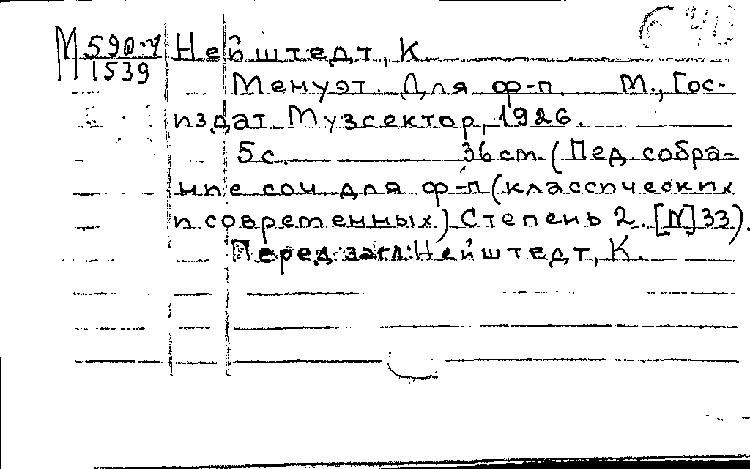 М 590-7 Нейштедт, К.
1539
Менуэт. Для ф-п. М., Гос-
издат. Музсектор, 1926.
5 с. 36 cm. (Пед. собра-
ние соч. для ф-п (классических
и современных) Степень 2. [N] 33).
Перед загл: Нейштедт, К.